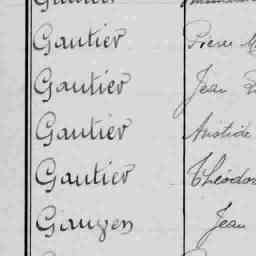 Gautier Pierre
Gautier Jean
Gautier Aristide
Gautier Théodor
Gauzen Jean